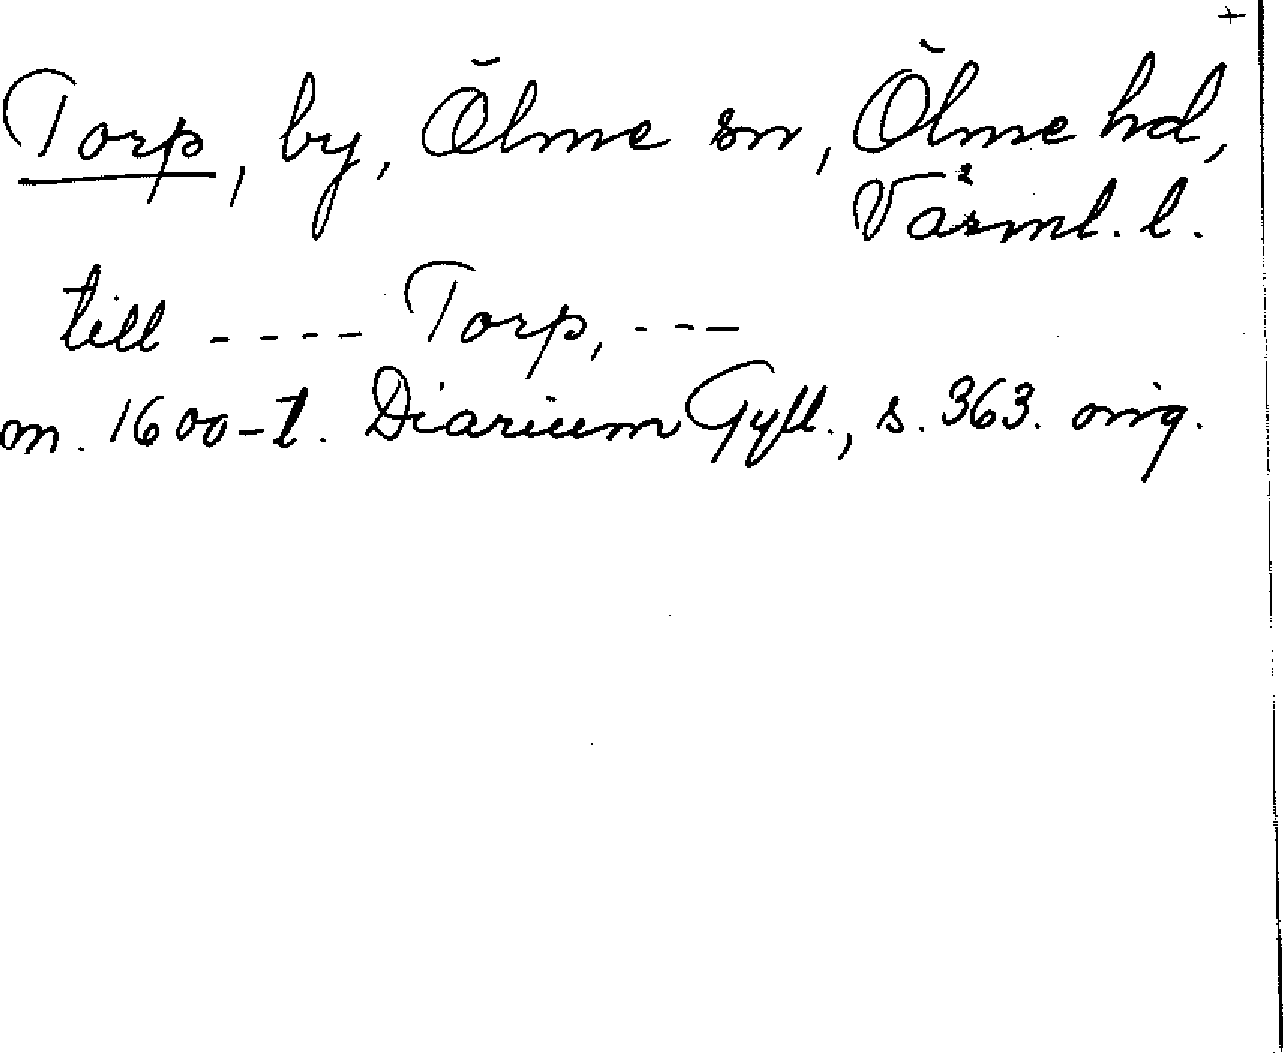 +
Torp, by, Ölme sn, Ölme hd,
Värml. l.
till ---- Torp, ---
m. 1600-t. Diarium Gyll., s. 363. orig.